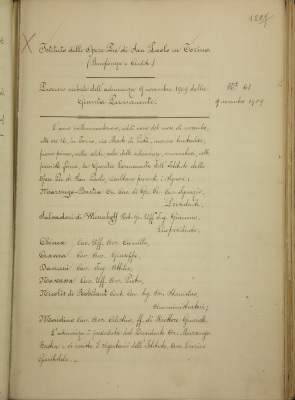 Istituto delle Opere Pie di San Paolo in Torino
(Beneficenza e Credito)
Processo verbale dell'adunanza 9 novembre 1909 della
Giunta Permanente.
N.° 41
9 novembre 1909
L'anno millenovecentonove, addì nove del mese di novembre,
alle ore 16, in Torino, via Monte di Pietà, numero trentadue,
piano primo, nella solita sala delle adunanze, convocatasi, nelle
prescritte forme, la Giunta Permanente dell'Istituto delle
Opere Pie di San Paolo, risultano presenti i Signori:
Presidente;
Salvadori di Wiesenhoff Nob. Uff. Ing. Giacomo,
Vicepresidente;
Chiesa Cav. Uff. Avv. Camillo,
Cav. Avv. Giuseppe,
Cav. Ing. Attilio,
Ravazza Cav. Uff. Avv. Pietro,
Nicolis di Robilant Cav. Ing. Stanislao,
Amministratori;
Mondino Cav. Avv. ff. di Direttore Generale.
L'adunanza è presieduta dal Presidente
e vi assiste il Segretario dell'Istituto, Avv. Enrico
Garibaldi.